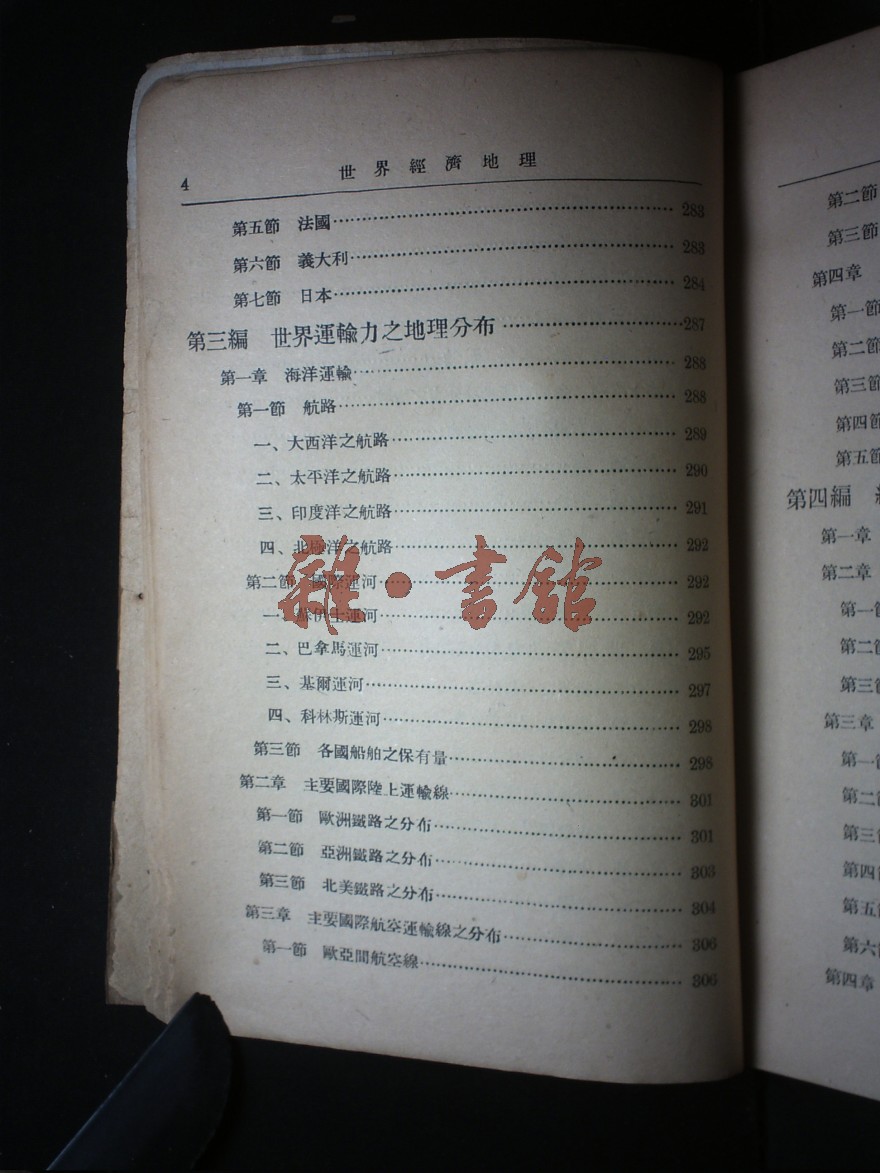 4 世界經濟地理
第五節 法國 283
第六節 義大利 283
第七節 日本 284
第三編 世界運輸力之地理分布 287
第一章 海洋運輸 288
第一節 航路 288
一、大西洋之航路 289
二、太平洋之航路 290
三、印度洋之航路 291
四、北極洋之航路 292
第二節 國際運河 292
一、蘇伊士運河 292
二、巴拿馬運河 295
三、基爾運河 297
四、科林斯運河 298
第三節 各國船舶之保有量 298
第二章 主要國際陸上運輸線 301
第一節 歐洲鐵路之分布 301
第二節 亞洲鐵路之分布 303
第三節 北美鐵路之分布 304
第三章 主要國際航空運輸線之分布 306
第一節 歐亞間航空線 306
雜·書館
第二節
第三節
第四章
第一節
第二節
第三節
第四節
第五節
第四編
第一章
第二章
第一節
第二節
第三節
第三章
第一節
第二節
第三節
第四節
第五節
第六節
第四章